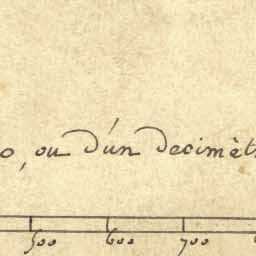 ou d'un decimèt
500 600 700